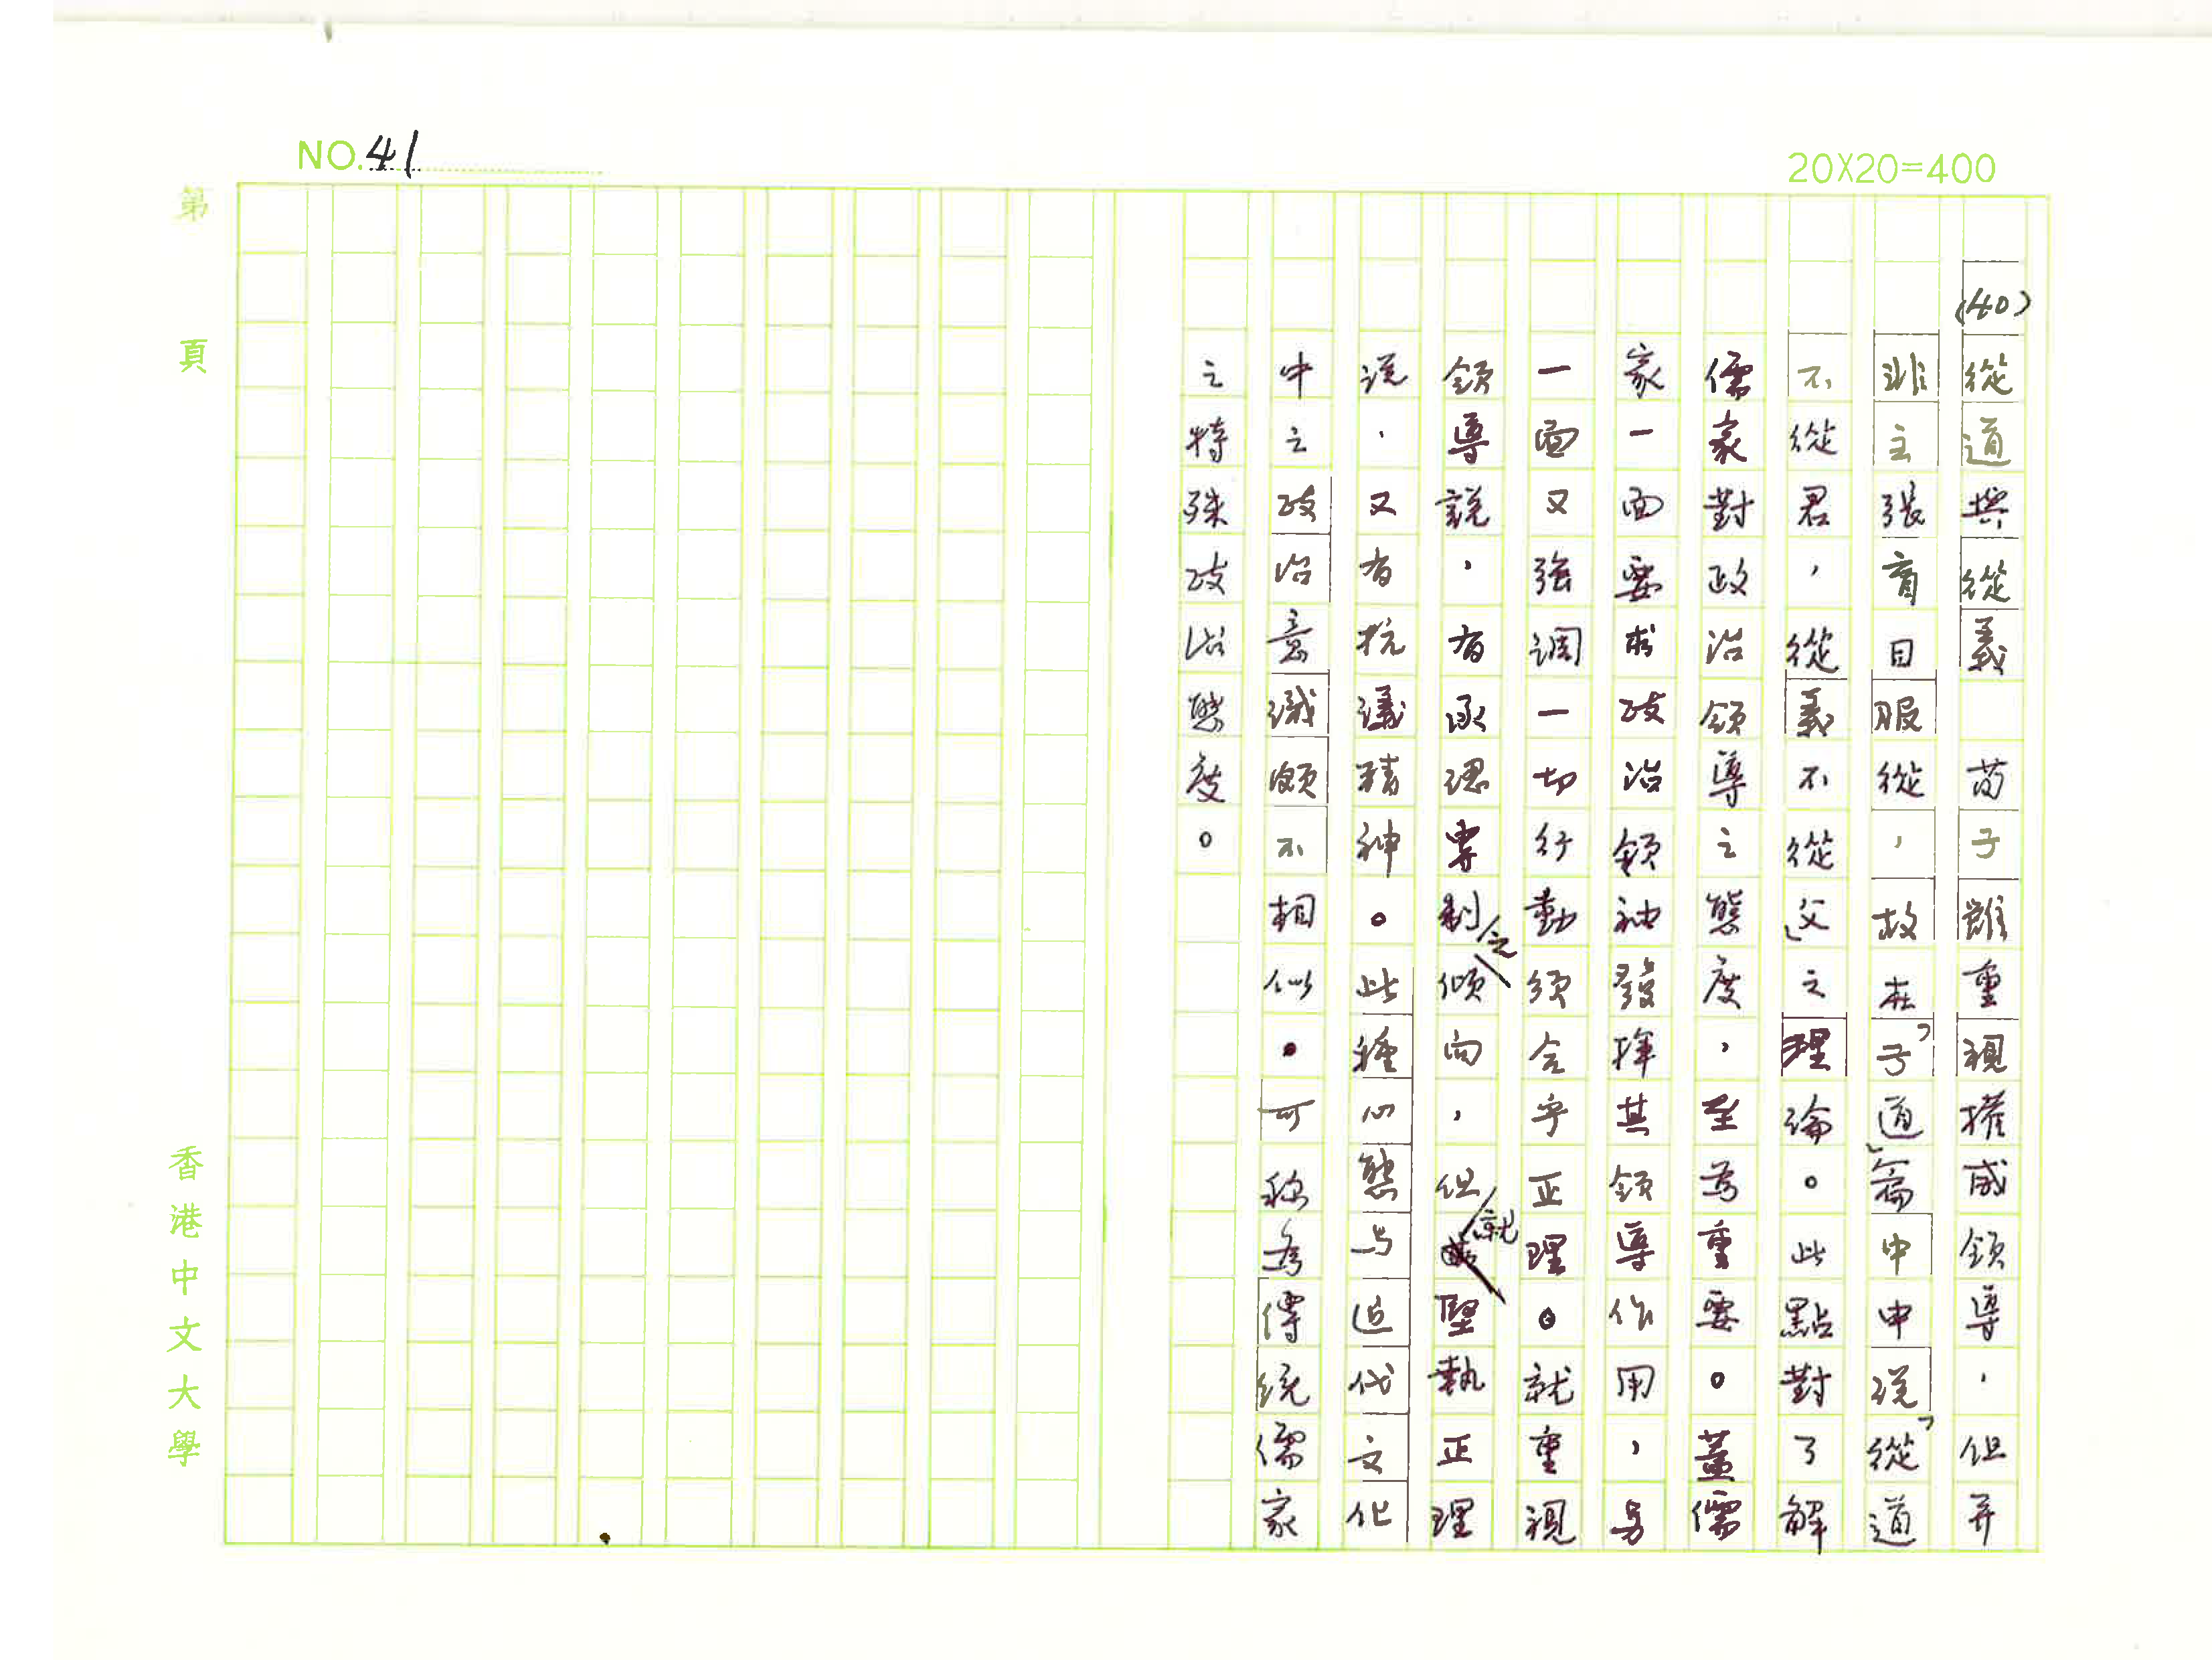 NO.41
20X20=400
(40)從道與從義　荀子雖重視權威領導，但并
非主張盲目服從，故在「子道」篇中申說「從道
不從君，從義不從父」之理論。此點對了解
儒家對政治領導之態度，至為重要。蓋儒
家一面要求政治領袖發揮其領導作用，另
一面又強調一切行動須合乎正理。就重視
領導說，有承認專制之傾向，但就堅執正理
說，又有抗議精神。此種心態与近代文化
中之政治意識頗不相似。可稱為傳統儒家
之特殊政治態度。
第　頁
香港中文大學